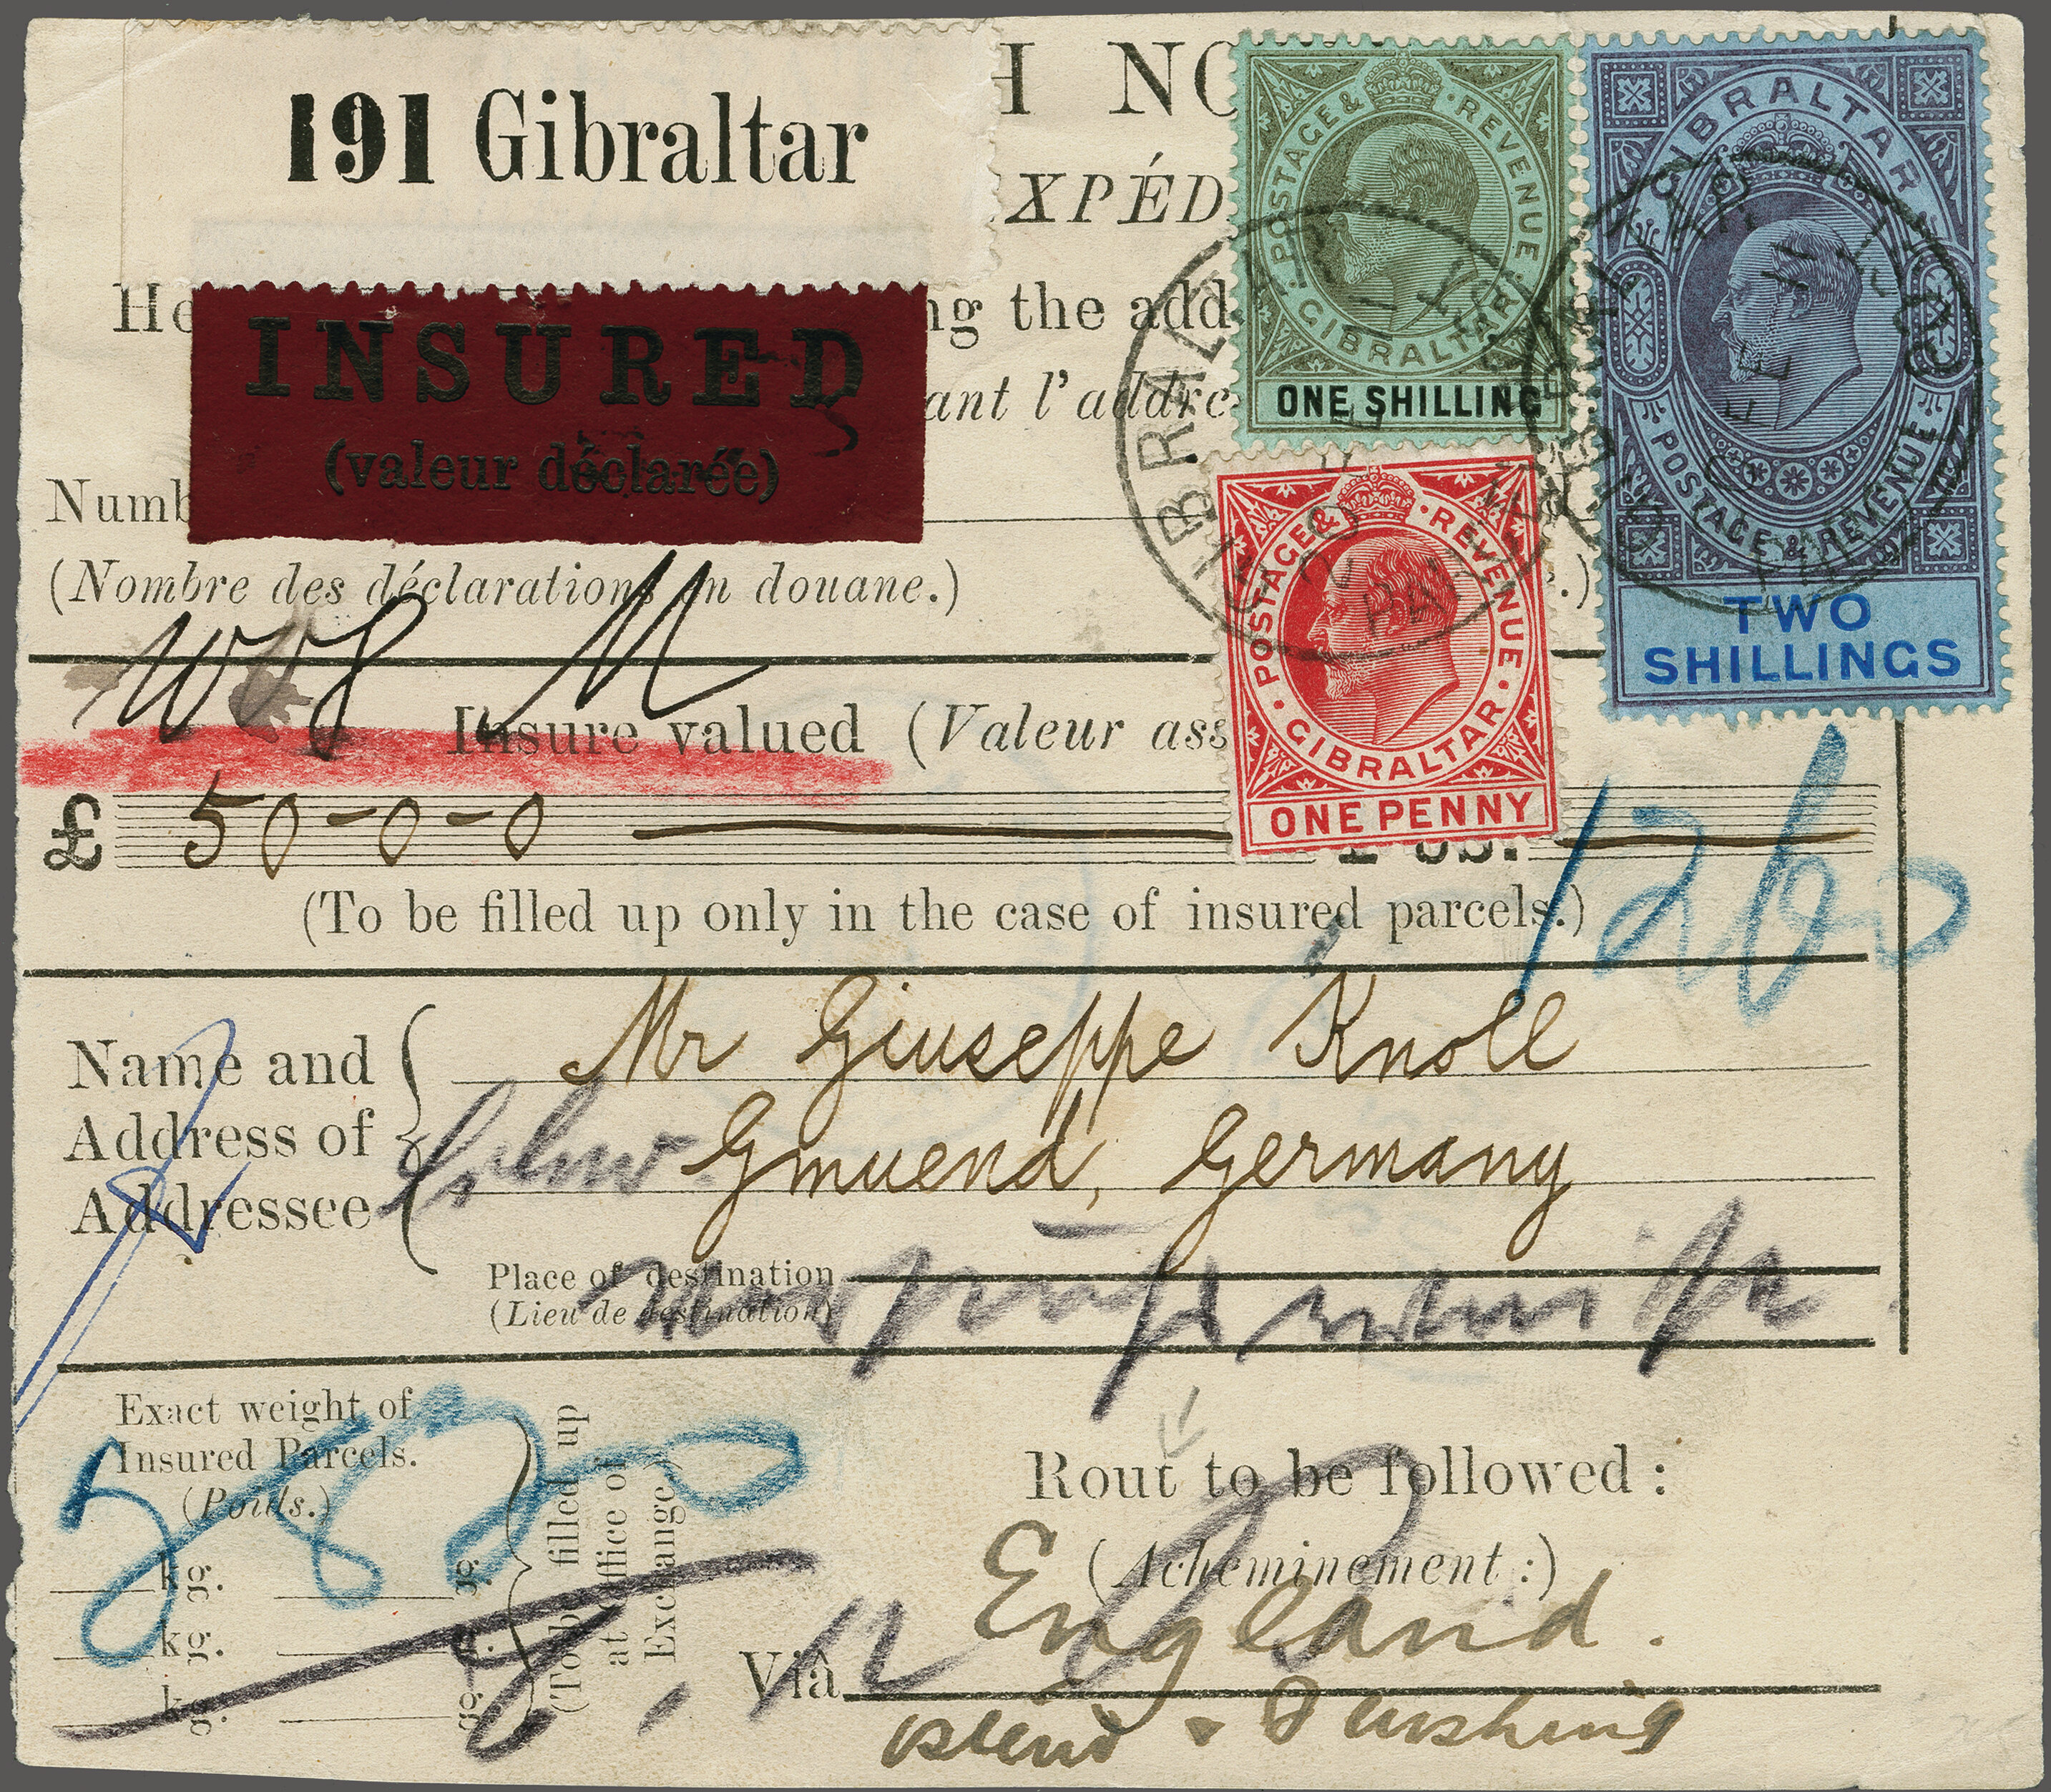 191 Gibraltar
H NO
XPÉD
INSURED
(valeur déclarée)
He
ng the add
ant l'addre
Numb
(Nombre des déclarations en douane.)
POSTAGE & REVENUE
GIBRALTAR
ONE SHILLING
GIBRALTAR
POSTAGE & REVENUE
TWO
SHILLINGS
POSTAGE & REVENUE
GIBRALTAR
ONE PENNY
Insure valued (Valeur ass
£ 50-0-0
(To be filled up only in the case of insured parcels.)
1260
Name and
Address of
Addressee
Mr Giuseppe Knoll
Gmuend, Germany
Place of destination
(Lieu de destination)
Exact weight of
Insured Parcels.
(Poids.)
kg. g.
kg. g.
kg. g.
(To be filled up
at office of
Exchange)
Rout to be followed :
(Acheminement :)
England.
Viâ
Flushing